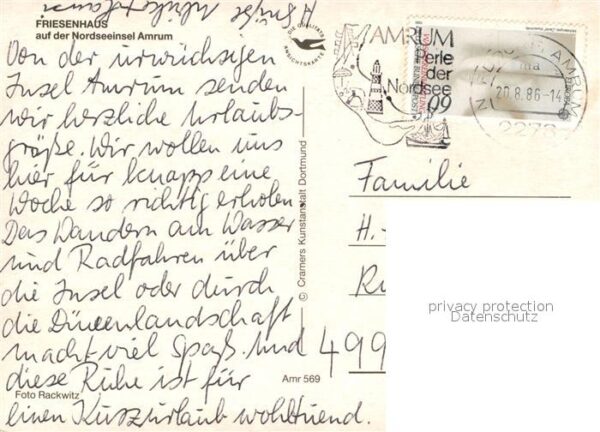 FRIESENHAUS
auf der Nordseeinsel Amrum
DIE QUALITÄTS
ANSICHTSKARTE
Von der urwüchsigen
Insel Amrum senden
wir herzliche Urlaubs-
grüße. Wir wollen uns
hier für knapp eine
Woche so richtig erholen
Das Wandern am Wasser
und Radfahren über
die Insel oder durch
die Dünenlandschaft
macht viel Spaß. Und
diese Ruhe ist für
einen Kurzurlaub wohltuend.
Foto Rackwitz
Amr 569
© Cramers Kunstanstalt Dortmund
AMRUM
Perle
der
Nordsee
AMRUM
20.8.86-14
Familie
H.-
499
privacy protection
Datenschutz